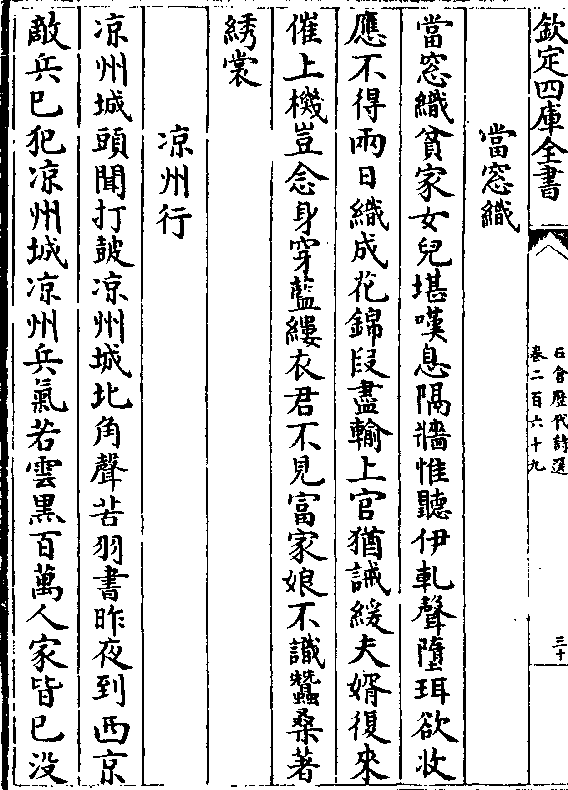 欽定四庫全書
石倉歴代詩選
卷二百六十九
三十
當窓織
當窓織貧家女兒堪嘆息隔牆惟聽伊軋聲墮珥欲收
應不得兩日織成花錦段盡輸上官猶誡緩夫婿復來
催上機豈念身穿藍縷衣君不見富家娘不識蠶桑著
綉裳
凉州行
凉州城頭聞打皷凉州城北角聲苦羽書昨夜到西京
敵兵已犯凉州城凉州兵氣若雲黒百萬人家皆已没